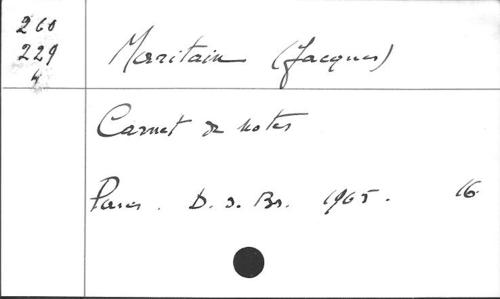 260
229
4
Maritain (Jacques)
Carnet de notes
Paris. D. d. Br. 1965. 16